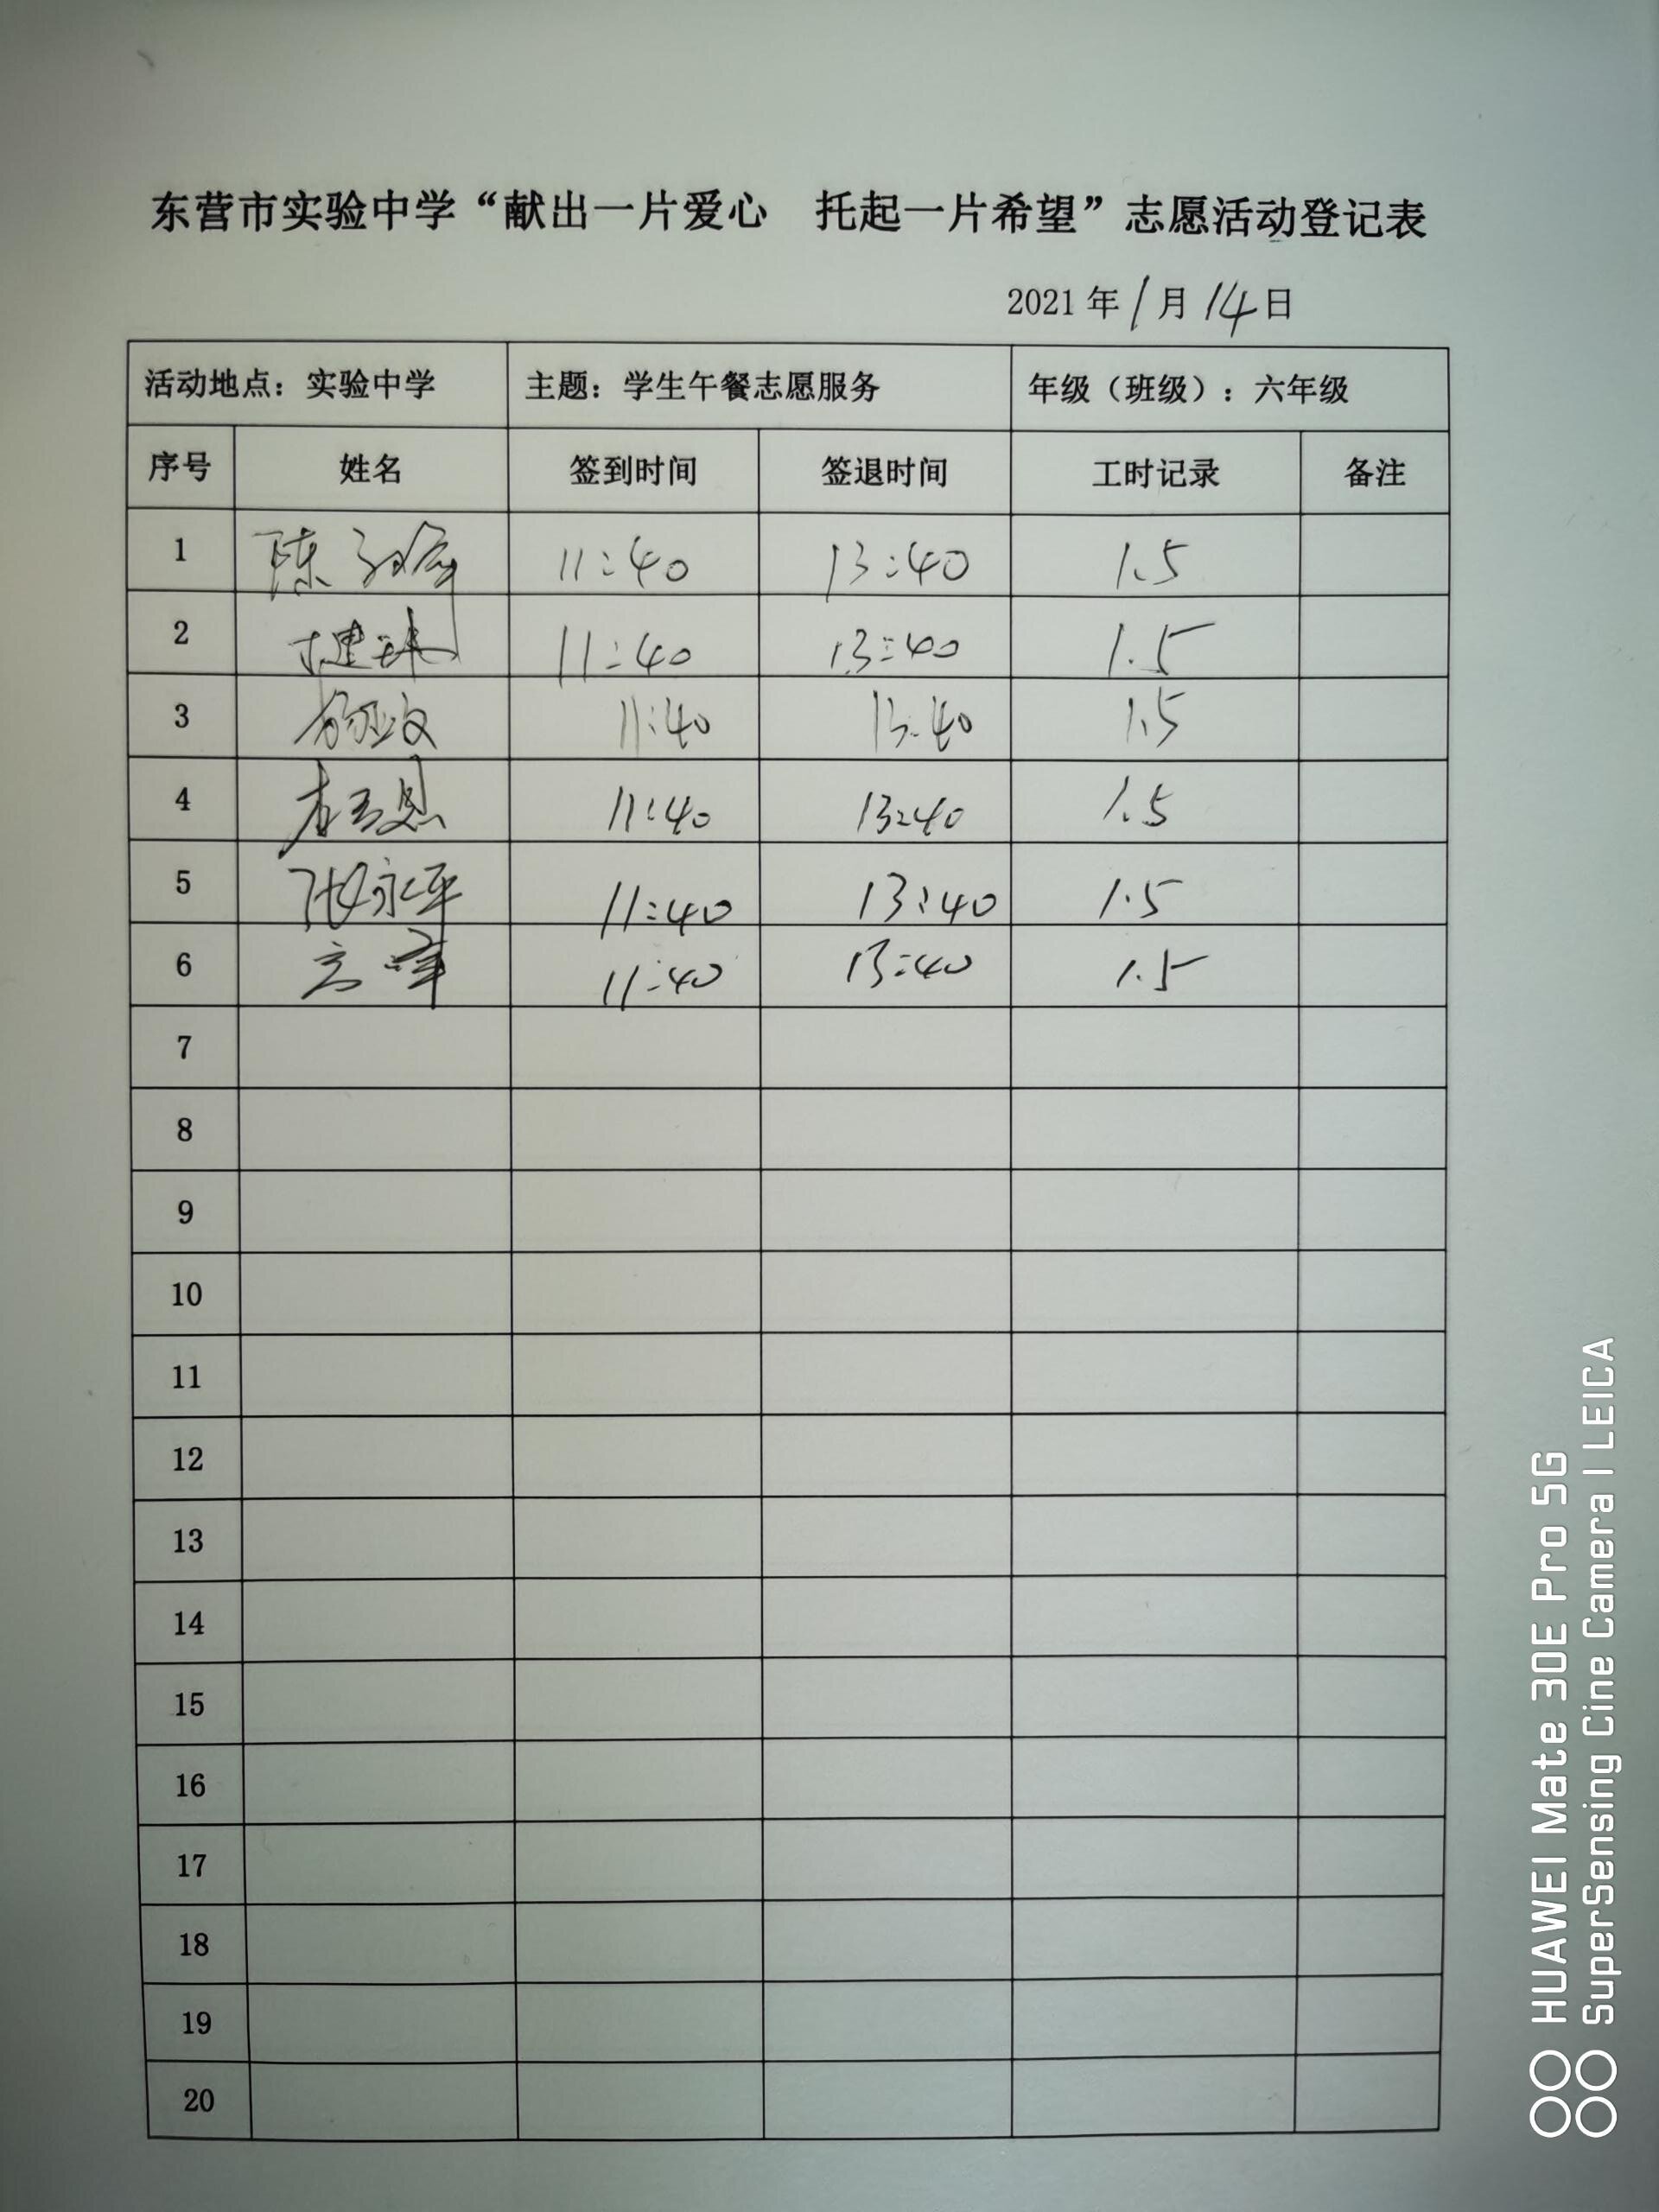 东营市实验中学“献出一片爱心 托起一片希望”志愿活动登记表
2021 年 1 月 14 日
活动地点：实验中学 主题：学生午餐志愿服务 年级（班级）：六年级
序号 姓名 签到时间 签退时间 工时记录 备注
1 陈 11:40 13:40 1.5
2 11:40 13:40 1.5
3 11:40 13:40 1.5
4 11:40 13:40 1.5
5 张永平 11:40 13:40 1.5
6 11:40 13:40 1.5
7
8
9
10
11
12
13
14
15
16
17
18
19
20
HUAWEI Mate 30E Pro 5G
SuperSensing Cine Camera | LEICA